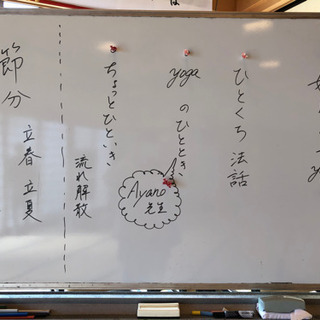 ひとくち法話
yogaのひととき
Ayano
先生
ちょっとひといき
流れ解散
節分
立春 立夏